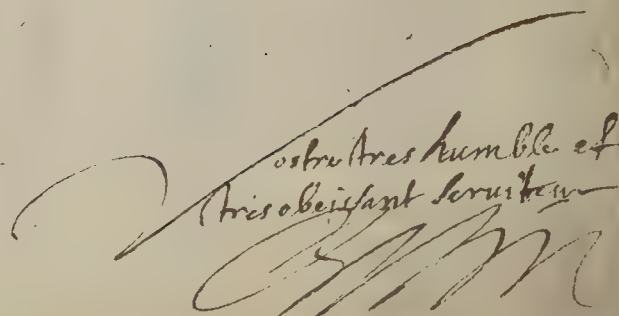 Vostre tres humble et
tres obeissant seruiteur